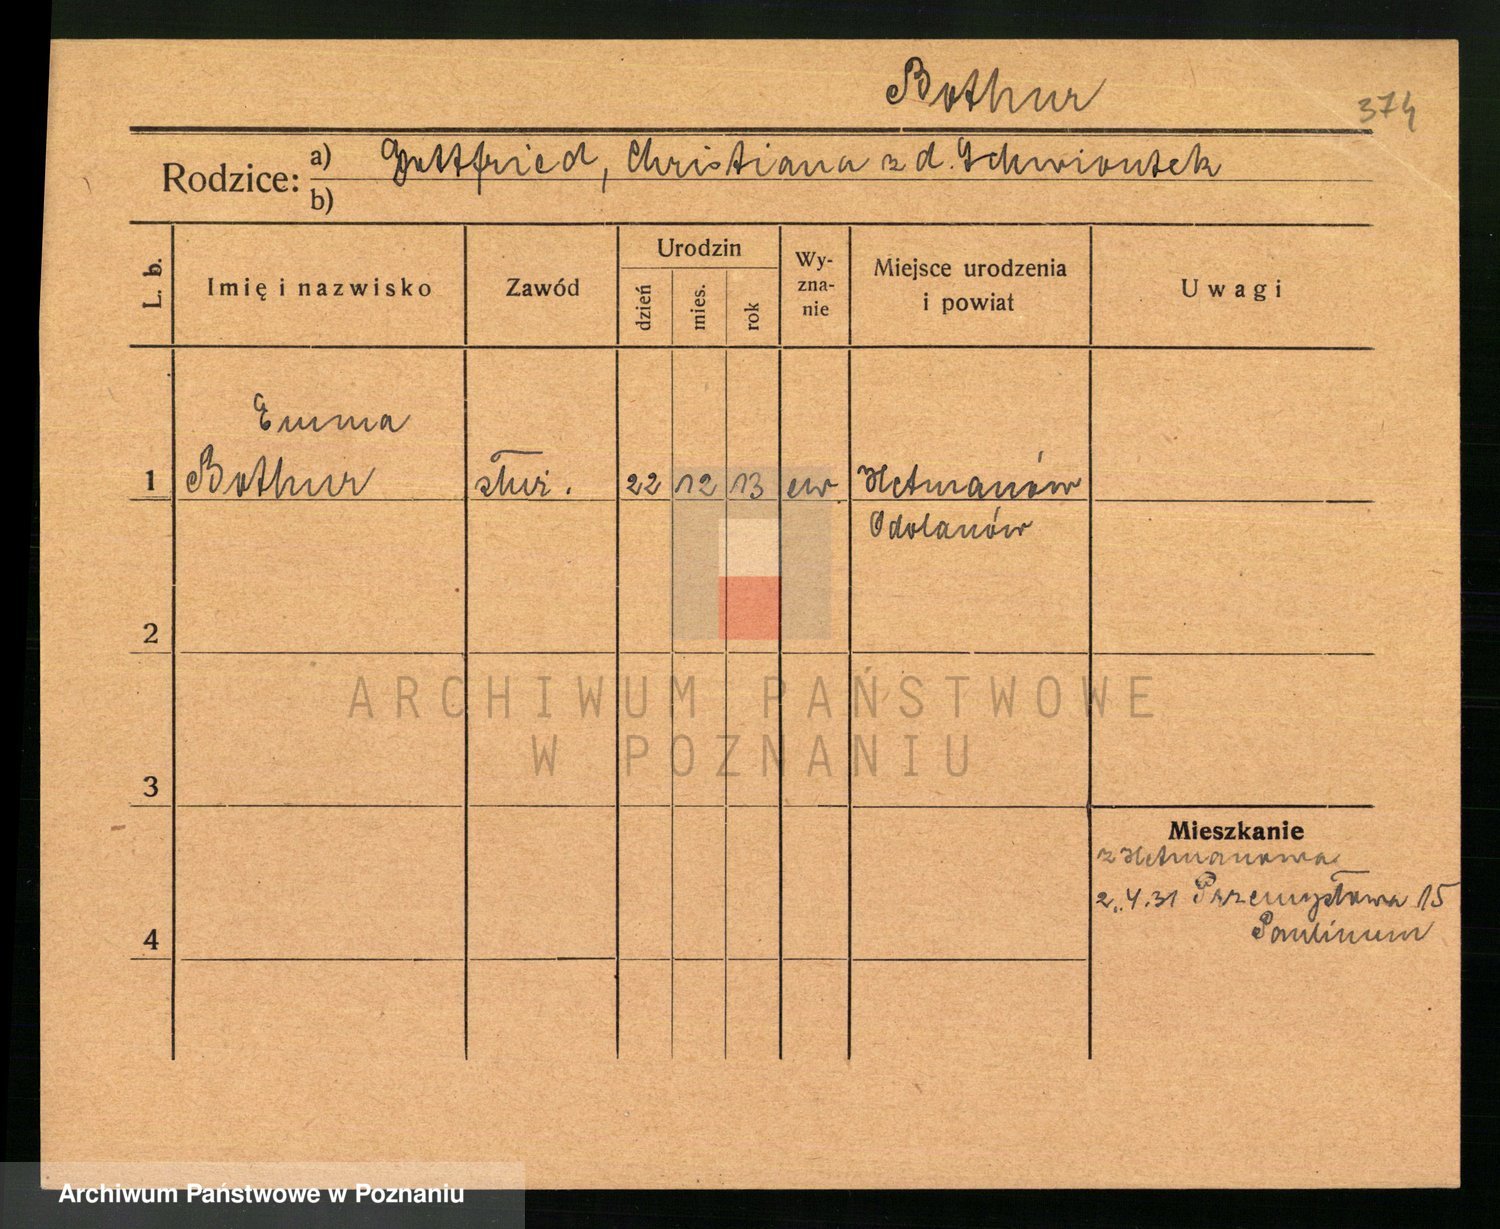 Bothur
374
Rodzice: a) Gottfried, Christiana z d. Schwiontek
b)
L. b.
Imię i nazwisko
Zawód
Urodzin
dzień
mies.
rok
Wy-
zna-
nie
Miejsce urodzenia
i powiat
Uwagi
Emma
1 Bothur służ. 22 12 13 ew Hetmanów
Odolanów
2
3
4
Mieszkanie
z Hetmanowa
2.4.31 Przemysłowa 15
Paulinum
ARCHIWUM PAŃSTWOWE
W POZNANIU
Archiwum Państwowe w Poznaniu